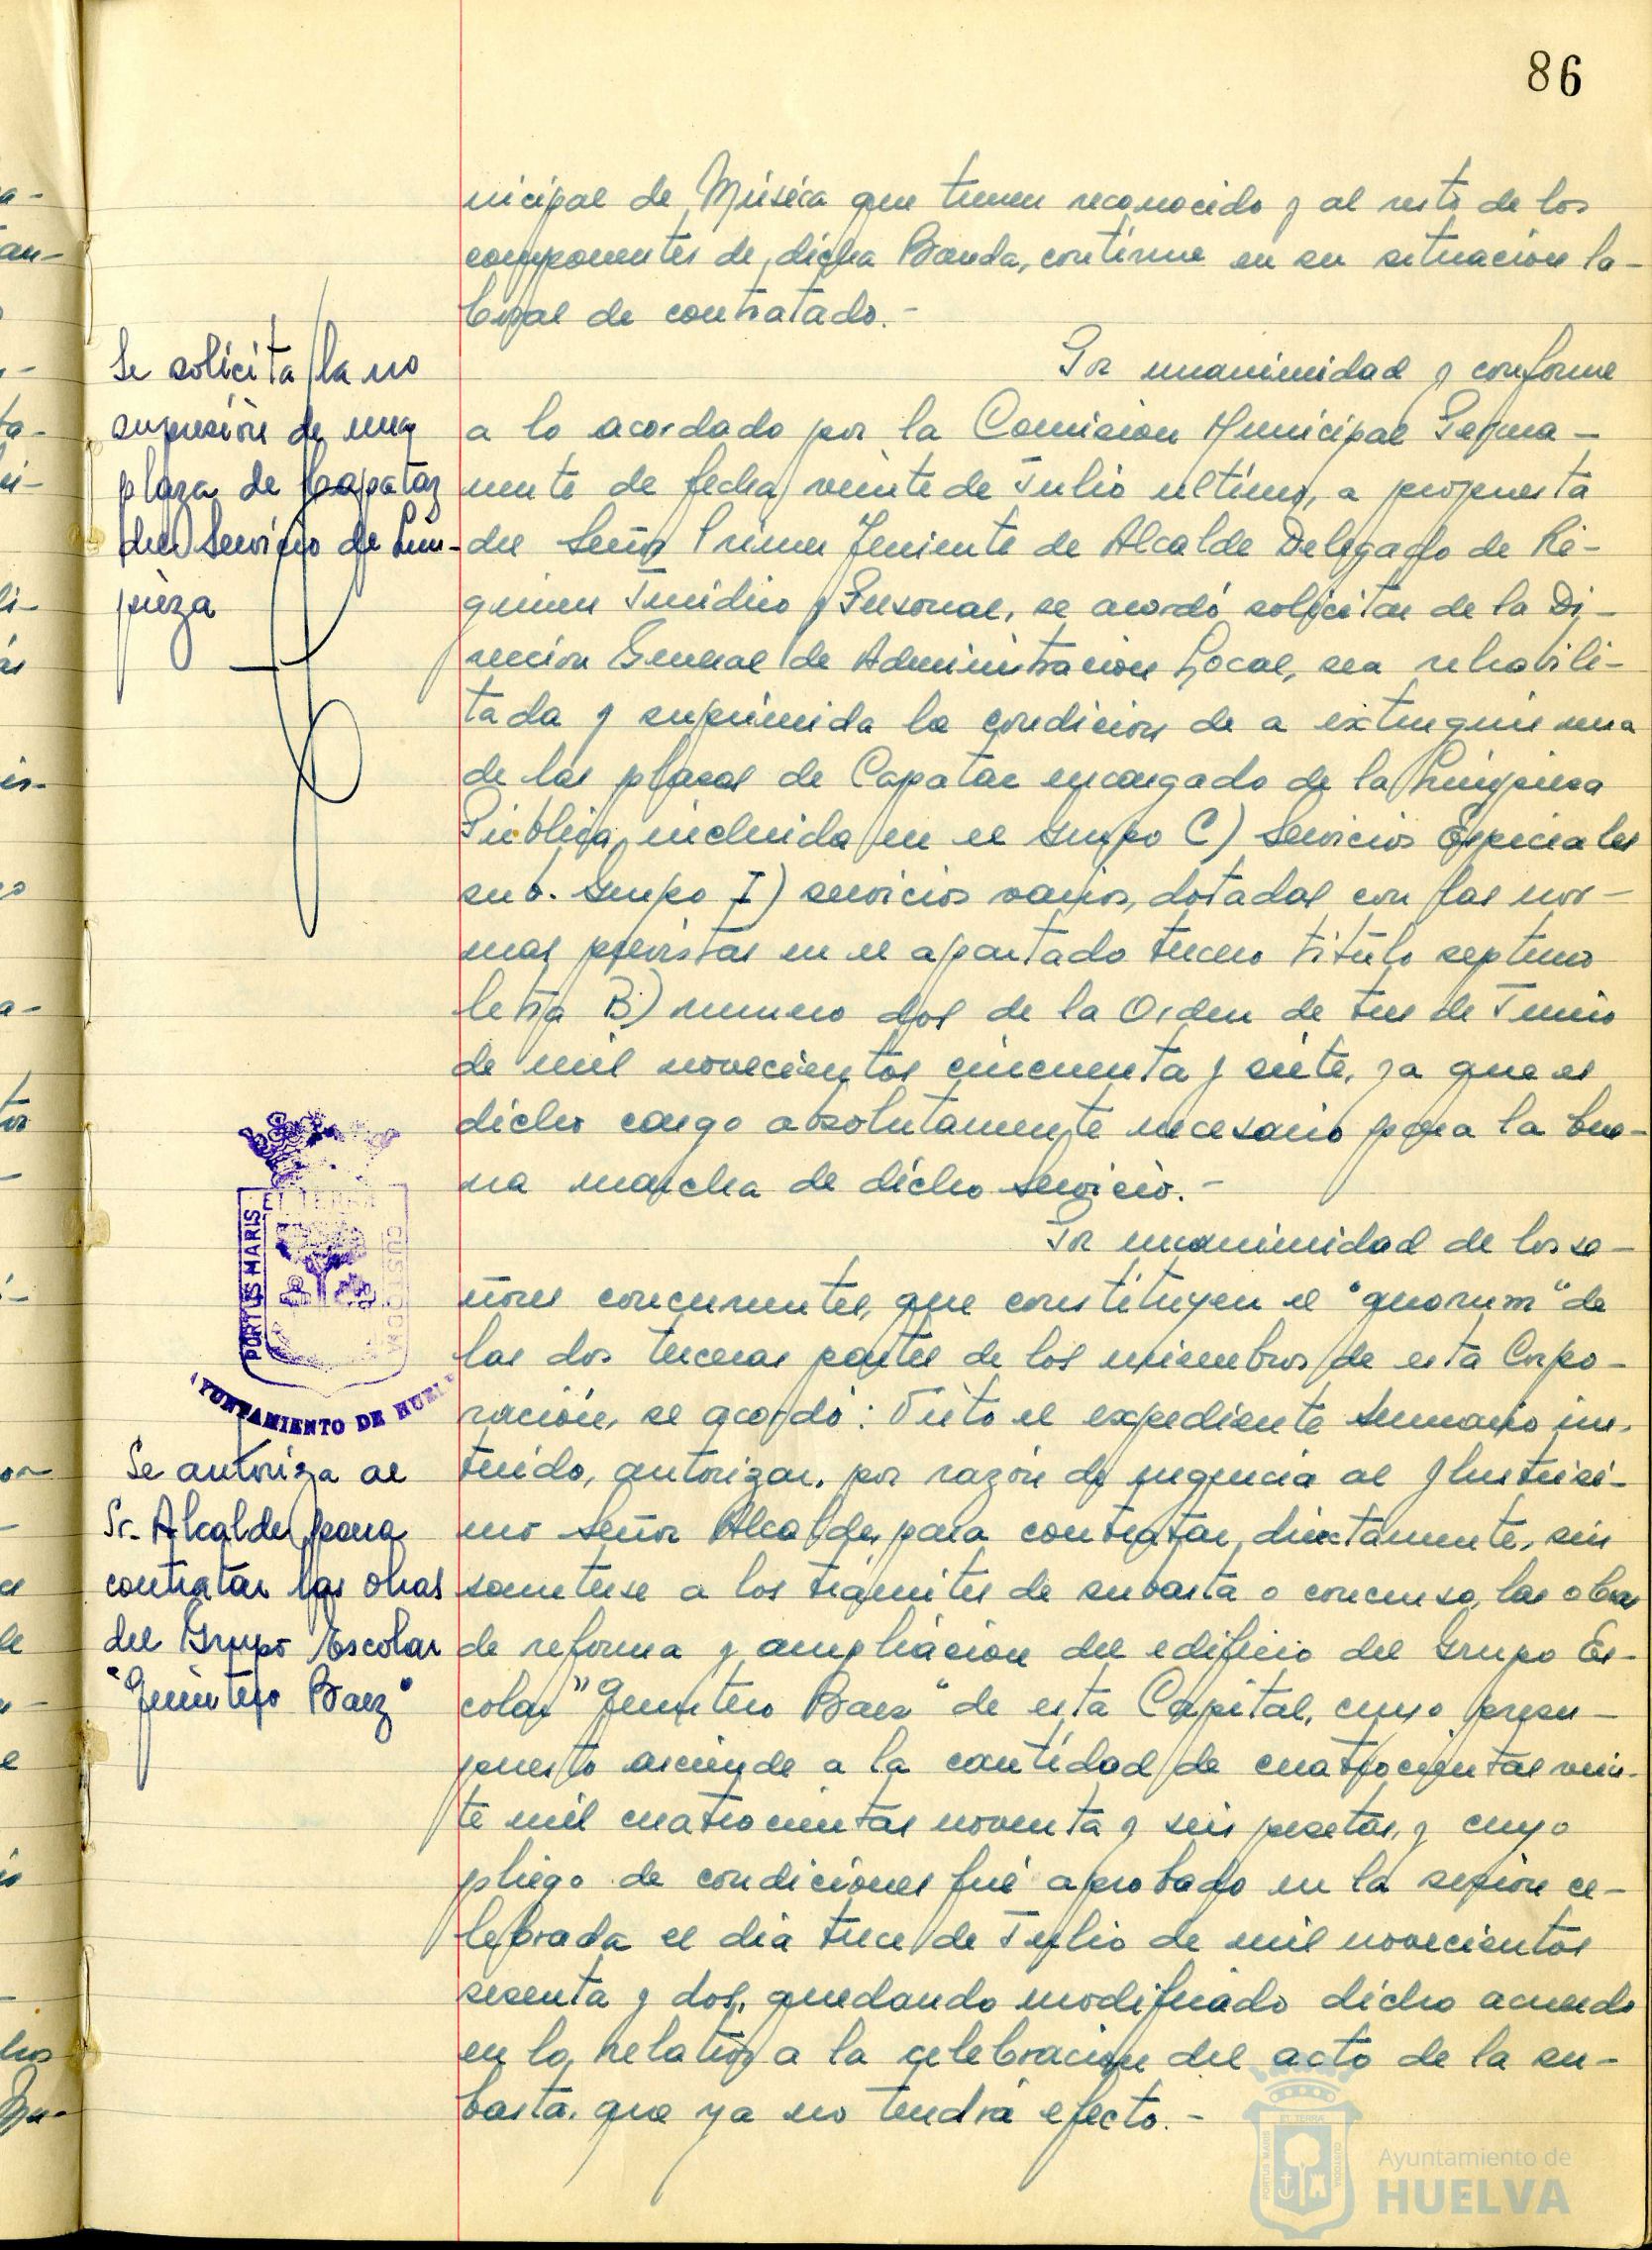 86
nicipal de Música que tienen reconocido y al resto de los
componentes de dicha Banda, continue en su situacion la-
boral de contratado.-
Se solicita la no
supresión de una
plaza de Capataz
del Servicio de Lim-
pieza
Por unanimidad y conforme
a lo acordado por la Comision Municipal Perma-
nente de fecha veinte de Julio ultimo, a propuesta
del Señor Primer Teniente de Alcalde Delegado de Ré-
gimen Juridico y Personal, se acordó solicitar de la Di-
reccion General de Administracion Local, sea rehabili-
tada y suprimida la condicion de a extinguir una
de las plazas de Capataz encargado de la Limpieza
Pública, incluida en el Grupo C) Servicios Especiales
sub. Grupo I) servicios varios, dotadas con las nor-
mas previstas en el apartado tercero titulo septimo
letra B) numero dos de la Orden de tres de Junio
de mil novecientos cincuenta y siete, ya que es
dicho cargo absolutamente necesario para la bue-
na marcha de dicho Servicio.-
PORTUS MARIS
ET TERRA
CUSTODIA
AYUNTAMIENTO DE HUELVA
Se autoriza al
Sr. Alcalde para
contratar las obras
del Grupo Escolar
"Quintero Baez"
Por unanimidad de los se-
ñores concurrentes, que constituyen el "quorum" de
las dos terceras partes de los miembros de esta Corpo-
ración, se acordó: Visto el expediente sumario ins-
truido, autorizar, por razón de urgencia al Ilustrisi-
mo Señor Alcalde, para contratar, directamente, sin
someterse a los tramites de subasta o concurso, las obras
de reforma y ampliacion del edificio del Grupo Es-
colar "Quintero Baez" de esta Capital, cuyo presu-
puesto asciende a la cantidad de cuatrocientas vein-
te mil cuatrocientas noventa y seis pesetas, y cuyo
pliego de condiciones fué aprobado en la sesion ce-
lebrada el dia trece de Julio de mil novecientos
sesenta y dos, quedando modificado dicho acuerdo
en lo relativo a la celebracion del acto de la su-
basta, que ya no tendrá efecto.-
Ayuntamiento de
HUELVA